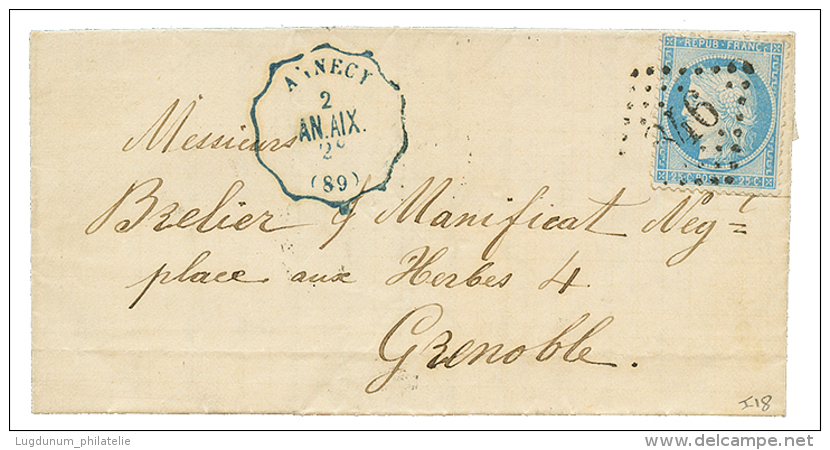 ANNECY
2
AN.AIX.
2e
(89)
REPUB. FRANC.
246
25 C POSTES 25 C
Messieurs
Brelier & Manificat Negt
place aux Herbes 4
Grenoble.
I18
Lugdunum_philatelie
© delcampe.net